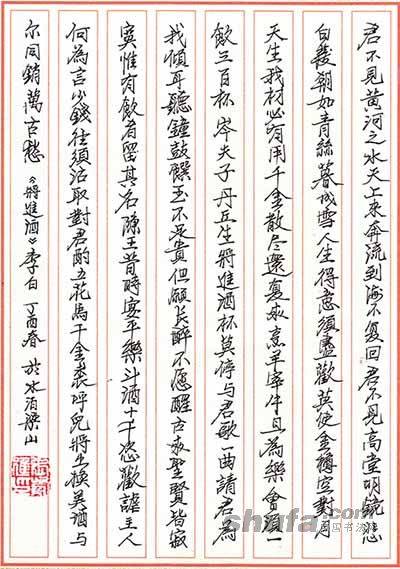 君不見黄河之水天上來奔流到海不复回君不見高堂明鏡悲
白髮朝如青絲暮成雪人生得意須盡歡莫使金樽空對月
天生我材必有用千金散尽還复來烹羊宰牛且為樂會須一
飲三百杯岑夫子丹丘生將進酒杯莫停与君歌一曲請君為
我傾耳聽鐘鼓饌玉不足貴但願長醉不愿醒古來聖賢皆寂
寞惟有飲者留其名陳王昔時宴平樂斗酒十千恣歡謔主人
何為言少錢徑須沽取對君酌五花馬千金裘呼兒將出換美酒与
尔同銷萬古愁《將進酒》李白 丁酉春 於水泊梁山
shufa.com